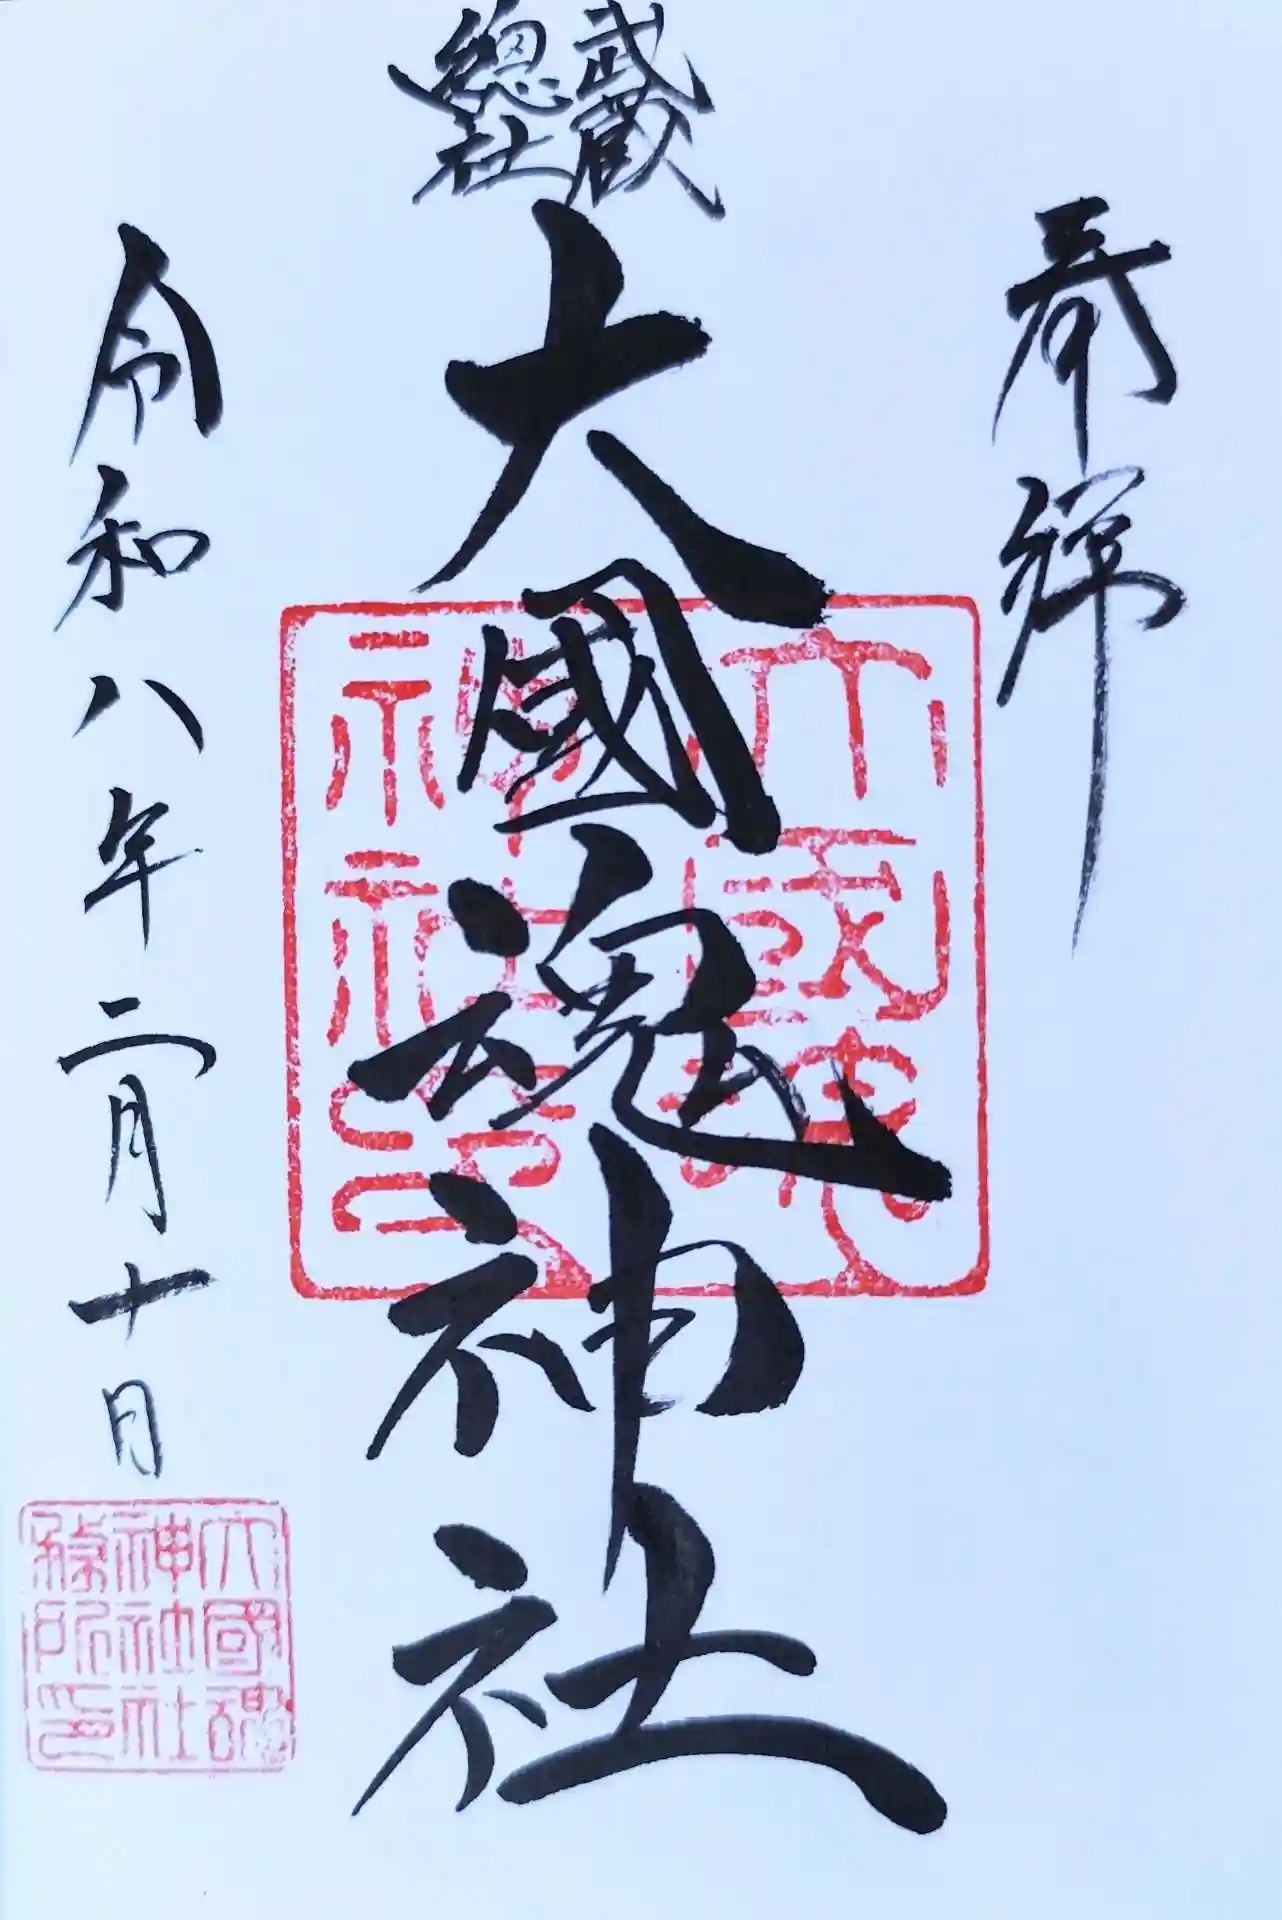 奉拝
武蔵
總社
大國魂神社
令和八年二月十日
大國魂
神社社
務所印